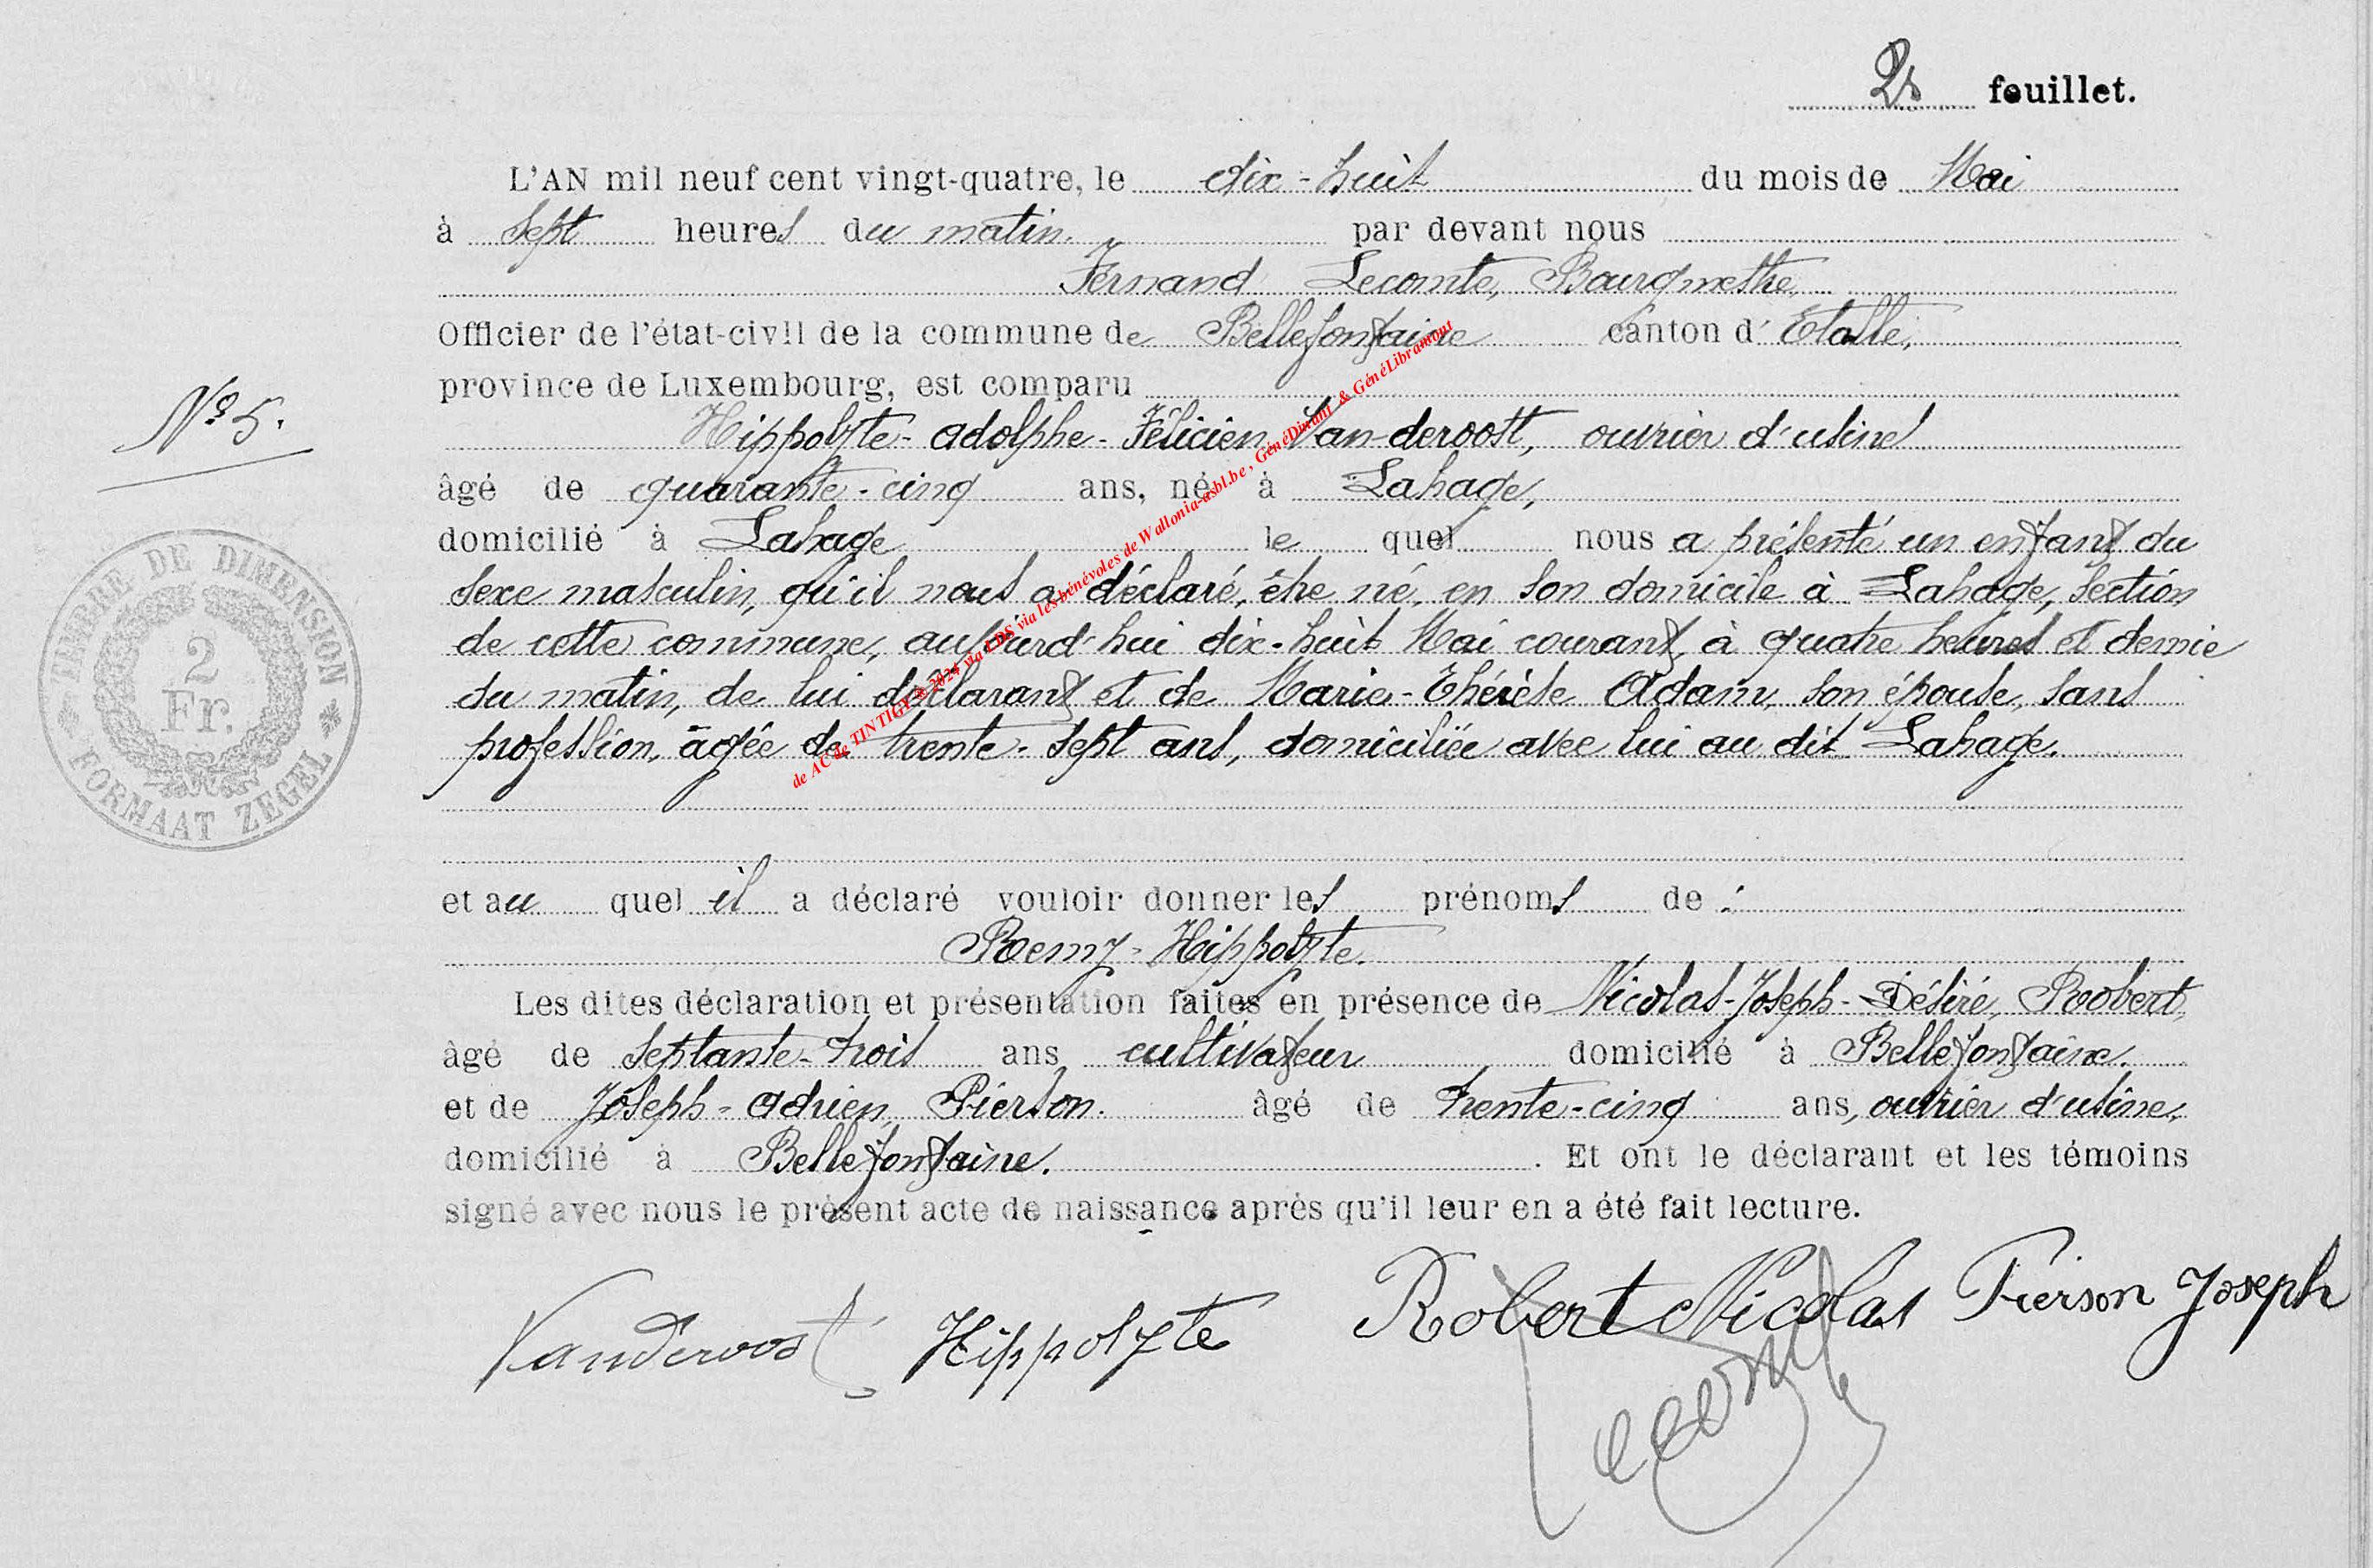 2s feuillet.
L'AN mil neuf cent vingt-quatre, le dix-huit du mois de Mai
à sept heures du matin. par devant nous
Fernand Lecomte, Bourgmestre,
Officier de l'état-civil de la commune de Bellefontaine canton d'Etalle,
province de Luxembourg, est comparu
N° 5.
Hippolyte-Adolphe-Félicien Van-deroost, ouvrier d'usines
âgé de quarante-cinq ans, né à Lahage,
domicilié à Lahage le quel nous a présenté un enfant du
sexe masculin, qu'il nous a déclaré, être né, en son domicile à Lahage, section
de cette commune, aujourd'hui dix-huit Mai courant, à quatre heures et demie
du matin, de lui déclarant et de Marie-Thérèse Adam, son épouse, sans
profession, âgée de trente-sept ans, domiciliée avec lui au dit Lahage.
TIMBRE DE DIMENSION
2
Fr.
FORMAAT ZEGEL
de AC de TINTIGNY © 2024 via LDS via les bénévoles de Wallonia-asbl.be, GénéDinant & GénéLibramont
et au quel il a déclaré vouloir donner les prénoms de :
Remy-Hippolyte.
Les dites déclaration et présentation faites en présence de Nicolas-Joseph-Désiré, Robert,
âgé de septante-trois ans cultivateur domicilié à Bellefontaine.
et de Joseph-Adrien, Pierson. âgé de trente-cinq ans, ouvrier d'usine,
domicilié à Bellefontaine. . Et ont le déclarant et les témoins
signé avec nous le présent acte de naissance après qu'il leur en a été fait lecture.
Vanderoost Hippolyte Robert Nicolas Pierson Joseph
Lecomte